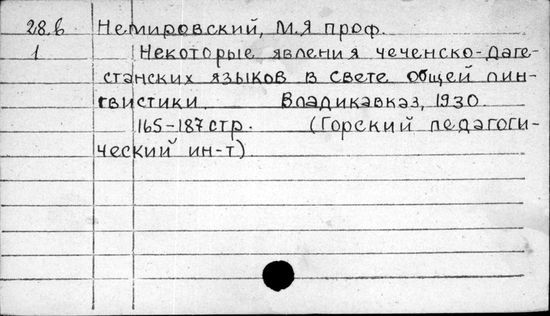 28.в Немировский, М.Я проф.
1 Некоторые явления чеченско-даге-
станских языков в свете общей лин-
гвистики Владикавказ, 1930.
165-187 стр. (Горский педагоги-
ческий ин-т)